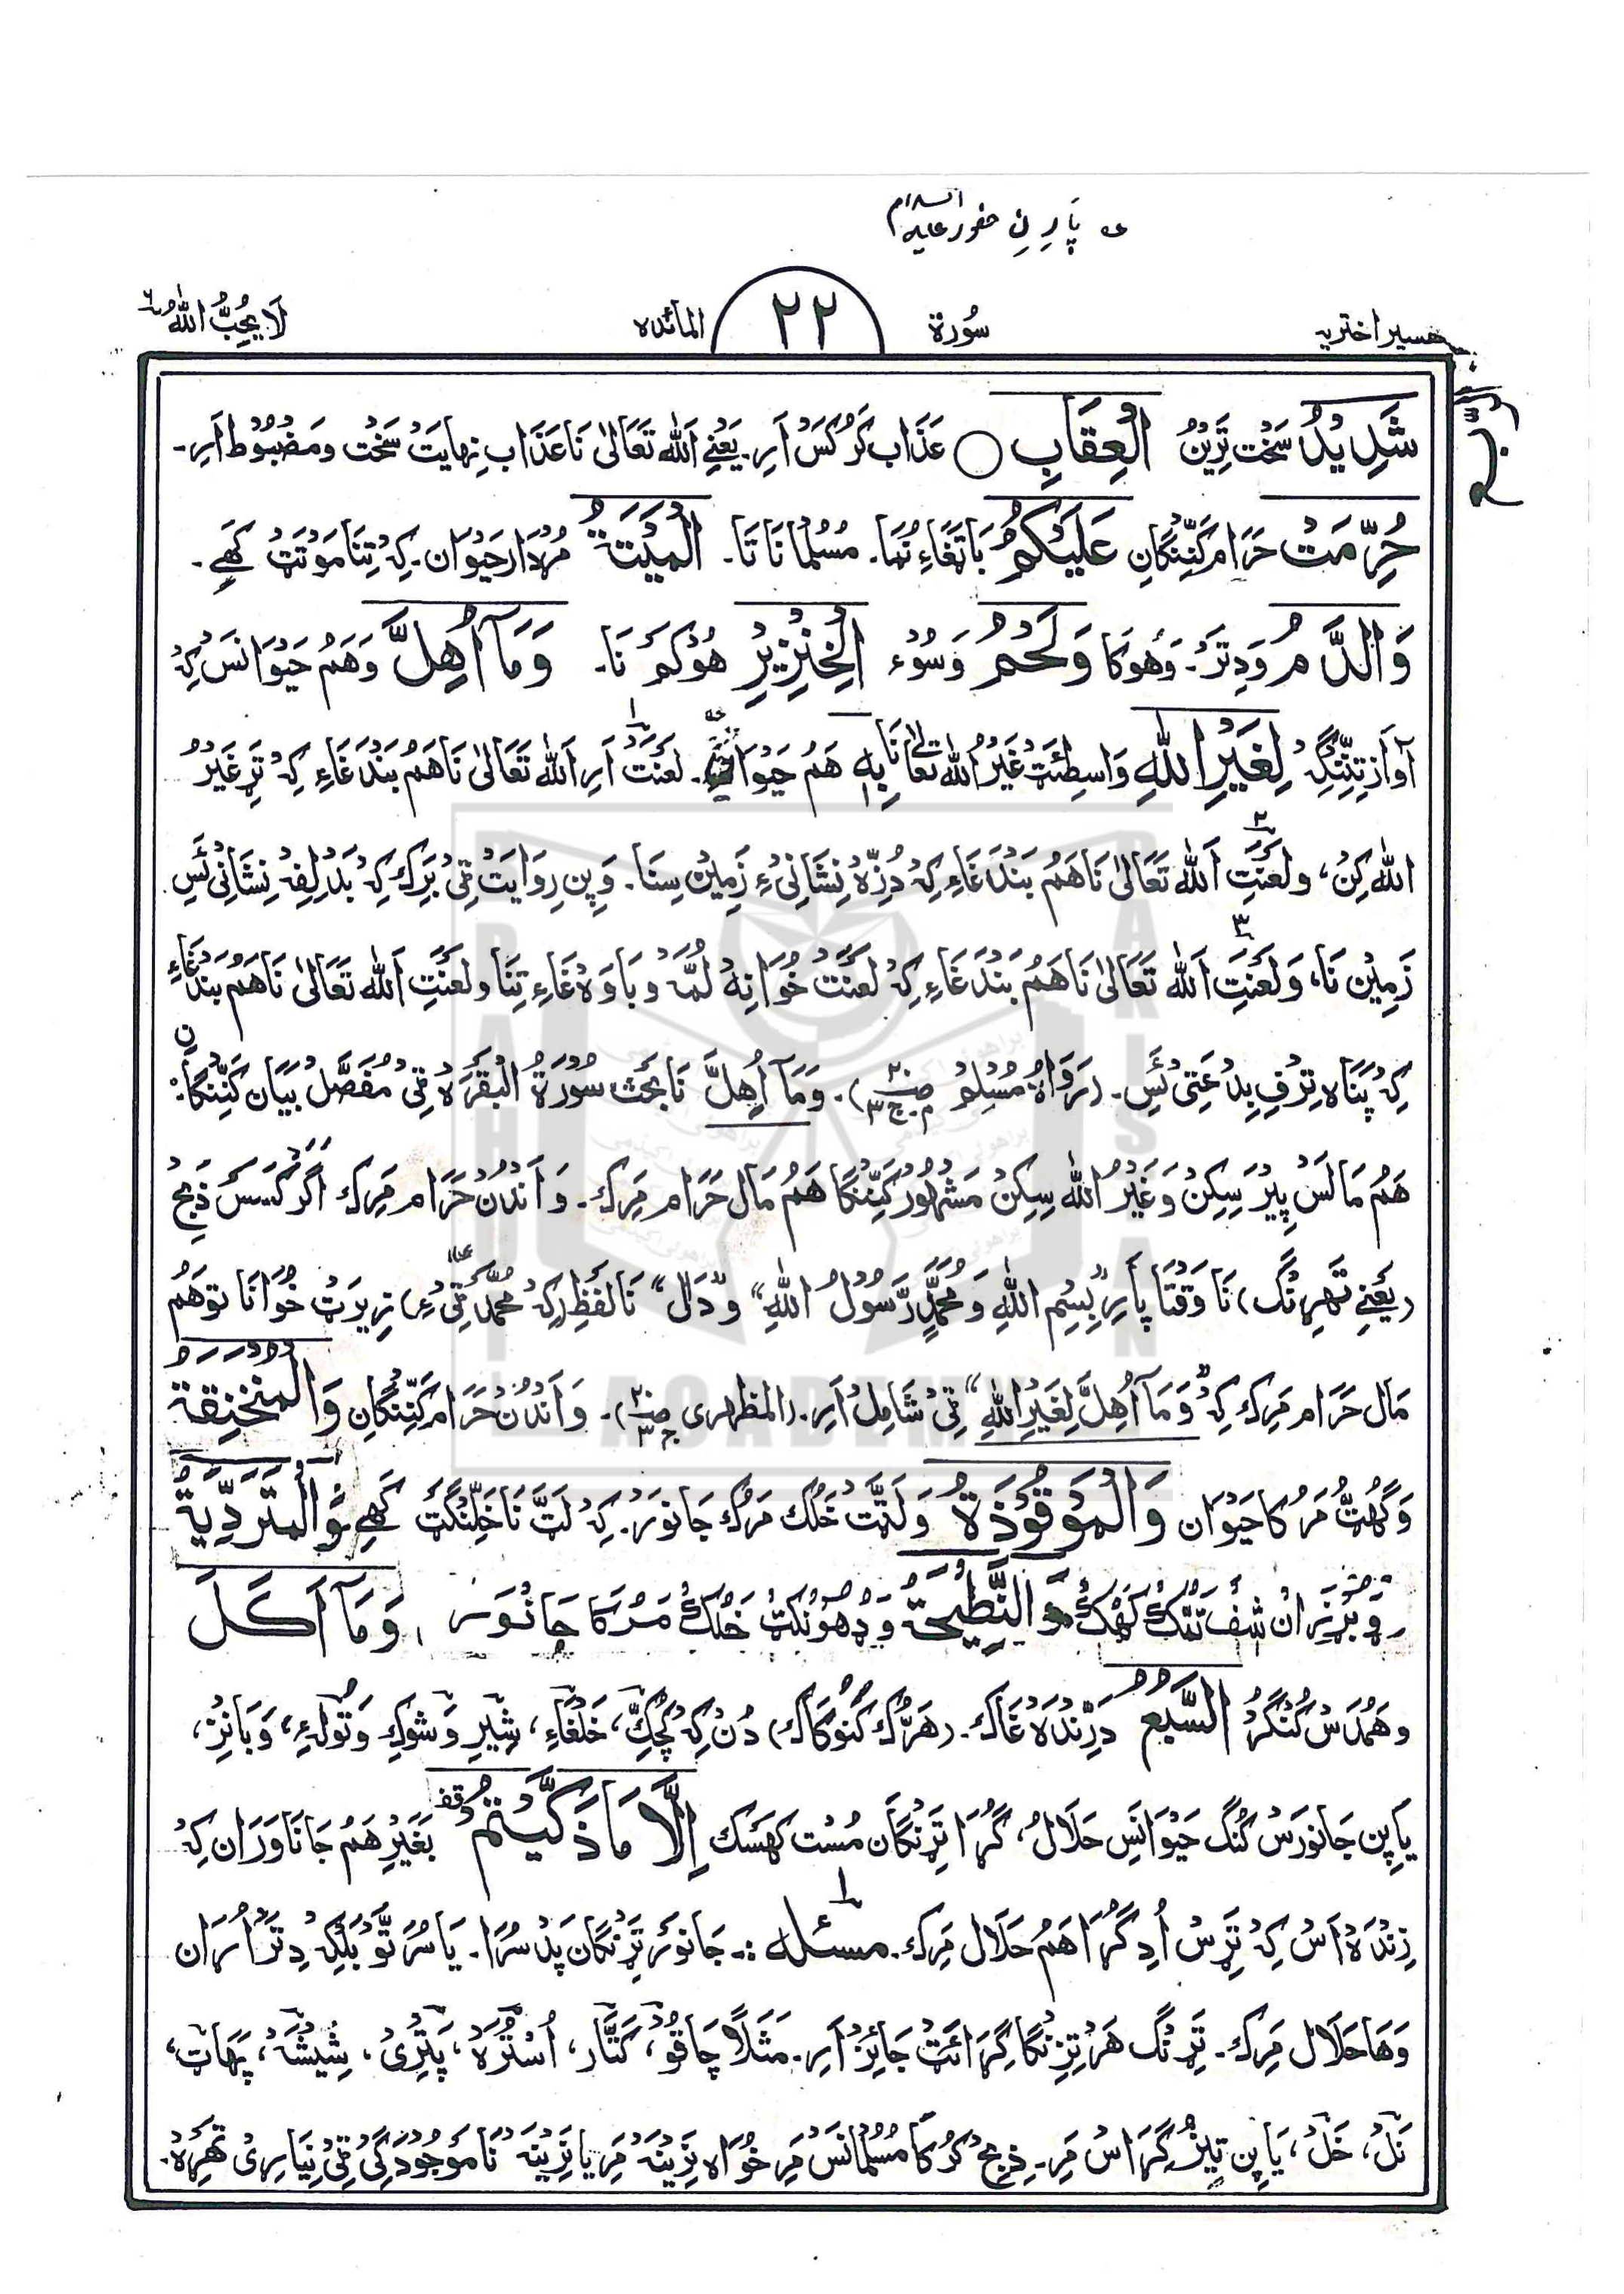 عه پَارِنِ حضور علیہ السلام
تفسیر اختریہ سُورة ٢٢ المائدہ لَا یُحِبُّ اللهُ ٦
شَدِیْدُ سَخْت تَرِیْنُ الْعِقَابِ ○ عَذَاب کَرُکَسْ اَرِ۔ یَعْنِے اَللّٰه تَعَالٰی نَا عَذَاب نِہَایَتْ سَخْت وَمَضْبُوْط اَرِ۔
حُرِّمَتْ حَرَام کَنِّنْگَانِ عَلَیْکُمُ بَاتْغَاءِ نُمَا۔ مُسْلُمانَاتَا۔ الْمَیْتَةُ مُرْدَار حَیْوَان۔ کِہْ تِنَا مَوْتَتْ کَھِے۔
وَالدَّمُ وَدِتَرْ۔ وَھُوکَا وَلَحْمُ وَسُوْء الْخِنْزِیْرِ ھُوْکَمْ نَا۔ وَمَآ اُھِلَّ وَھَمْ حَیْوَانَسْ کِہْ
آوَاز تِنِّنْگِہْ لِغَیْرِ اللّٰهِ وَاسِطِئَتْ غَیْرُ اللّٰه تَعَالٰی نَا بِهٖ ھَمْ حَیْوَان۔ لَعْنَتْ اَرِ اَللّٰه تَعَالٰی نَا ھَمْ بَنْدَغَاءِ کِہْ تَرِ غَیْرُ
اللّٰه کِنْ، وَلَعْنَتِ اَللّٰه تَعَالٰی نَا ھَمْ بَنْدَغَاءِ کِہْ دُزِّہْ نِشَانِیْ ءِ زَمِیْن سِنَا۔ وَپِن رِوَایَتْ ٹِیْ بَرِكْ کِہْ بَدْلِفِہْ نِشَانِیْ ئَسِ
زَمِیْن نَا، وَلَعْنَتِ اَللّٰه تَعَالٰی نَا ھَمْ بَنْدَغَاءِ کِہْ لَعْنَتْ خُوَانِہْ لُمَّہْ وَبَاوَہْ غَاءِ تِنَا وَلَعْنَتِ اَللّٰه تَعَالٰی نَا ھَمْ بَنْدَغَاءِ
کِہْ پَنَاہ تِرِفِ بِدْعَتِیْ ئَسِ۔ (رَوَاہُ مُسْلِمْ). وَمَآ اُھِلَّ نَا بَحْث سُوْرَةُ الْبَقَرَہْ ٹِیْ مُفَصَّلْ بَیَان کَنِّنْگَا:
ھَمْ مَالَسْ پِیْر سِکِنْ وَغَیْرُ اللّٰه سِکِنْ مَشْہُوْر کَنِّنْگَا ھَمْ مَال حَرَام مَرِك۔ وَاَنْدُنْ حَرَام مَرِك اَگَرْ کَسَسْ ذَبِحْ
(یَعْنِے تَھِرِنْگ) نَا وَقْتَا پَارِ "بِسْمِ اللّٰهِ وَمُحَمَّدٍ رَّسُوْلُ اللّٰهِ" وَ"دَال" نَا لَفْظِ (کِہْ مُحَمَّدْ ٹِیْ ءِ) زِیْرَتْ خُوَانَا تو ھَمْ
مَال حَرَام مَرِك کِہْ "وَمَآ اُھِلَّ لِغَیْرِ اللّٰهِ" ٹِیْ شَامِلْ اَرِ. (المظہری). وَاَنْدُنْ حَرَام کَنِّنْگَانِ وَالْمُنْخَنِقَةُ
وَگُھُتْ مَرُکَا حَیْوَان وَالْمَوْقُوْذَةُ وَلَٹَّتْ خَلُك مَرُك جَانُوَر۔ کِہْ لَٹَّ نَا خَلِنْگَتْ کَھِے وَالْمُتَرَدِّیَةُ
وَبُرْزِرَانْ شَفْ تَتِكْ کَھُكْ وَالنَّطِیْحَةُ وَدُھُوْنْکَتْ خَلُكْ مَرُکَا جَانُوَر، وَمَآ اَکَلَ
وَھَمْدَسْ کُنْگُرْ السَّبُعُ دَرِنْدَہْ غَاك۔ (ھَرُّك کَنُوکَاك) دُنْ کِہْ کُچِكِ، خَلْقَاءِ، شِیْرِ وَشوكِ وَتُولَہْ ءِ، وَبَانِزْ،
یَا پِن جَانُورَسْ کُنْگ حَیْوَانَسِ حَلَالُ، گُرَا تَرِنْگَان مُسْت کَھَسَك اِلَّا مَا ذَکَّیْتُمْ قف بَغَیْرِ ھَمْ جَانَاوَرَان کِہْ
زِنْدَہْ اَسْ کِہْ تَرِسْ اُدِ گُرَا ھَمْ حَلَال مَرِك۔ مسئلہ :۔ جَانوَر تَرِنْگَان پَدْ سُرَا۔ یَا سُرَتَّوْ بَلْکِہْ دِتَرْ اُرَان
وَھَا حَلَال مَرِك۔ تَرِنْگ ھَرْ تِزِنْگَا گِرَائَتْ جَائِزْ اَرِ۔ مَثَلًا چَاقُوْ، کَٹَّار، اُسْتُرَہْ، پَتْرِیْ، شِیْشَہْ، پَہَات،
نَلْ، خَلْ، یَا پِن تِیْزُ گِرَاسْ مَرِ۔ ذِبِحْ کُرُکَا مُسُلمانَسْ مَرِ خُوَاہ نَرِیْنَہْ مَرِ یَا نَرِیْنَہْ نَا مَوْجُوْدَگِیْ ٹِیْ نِیَارِیْ تَھِرِہْ۔